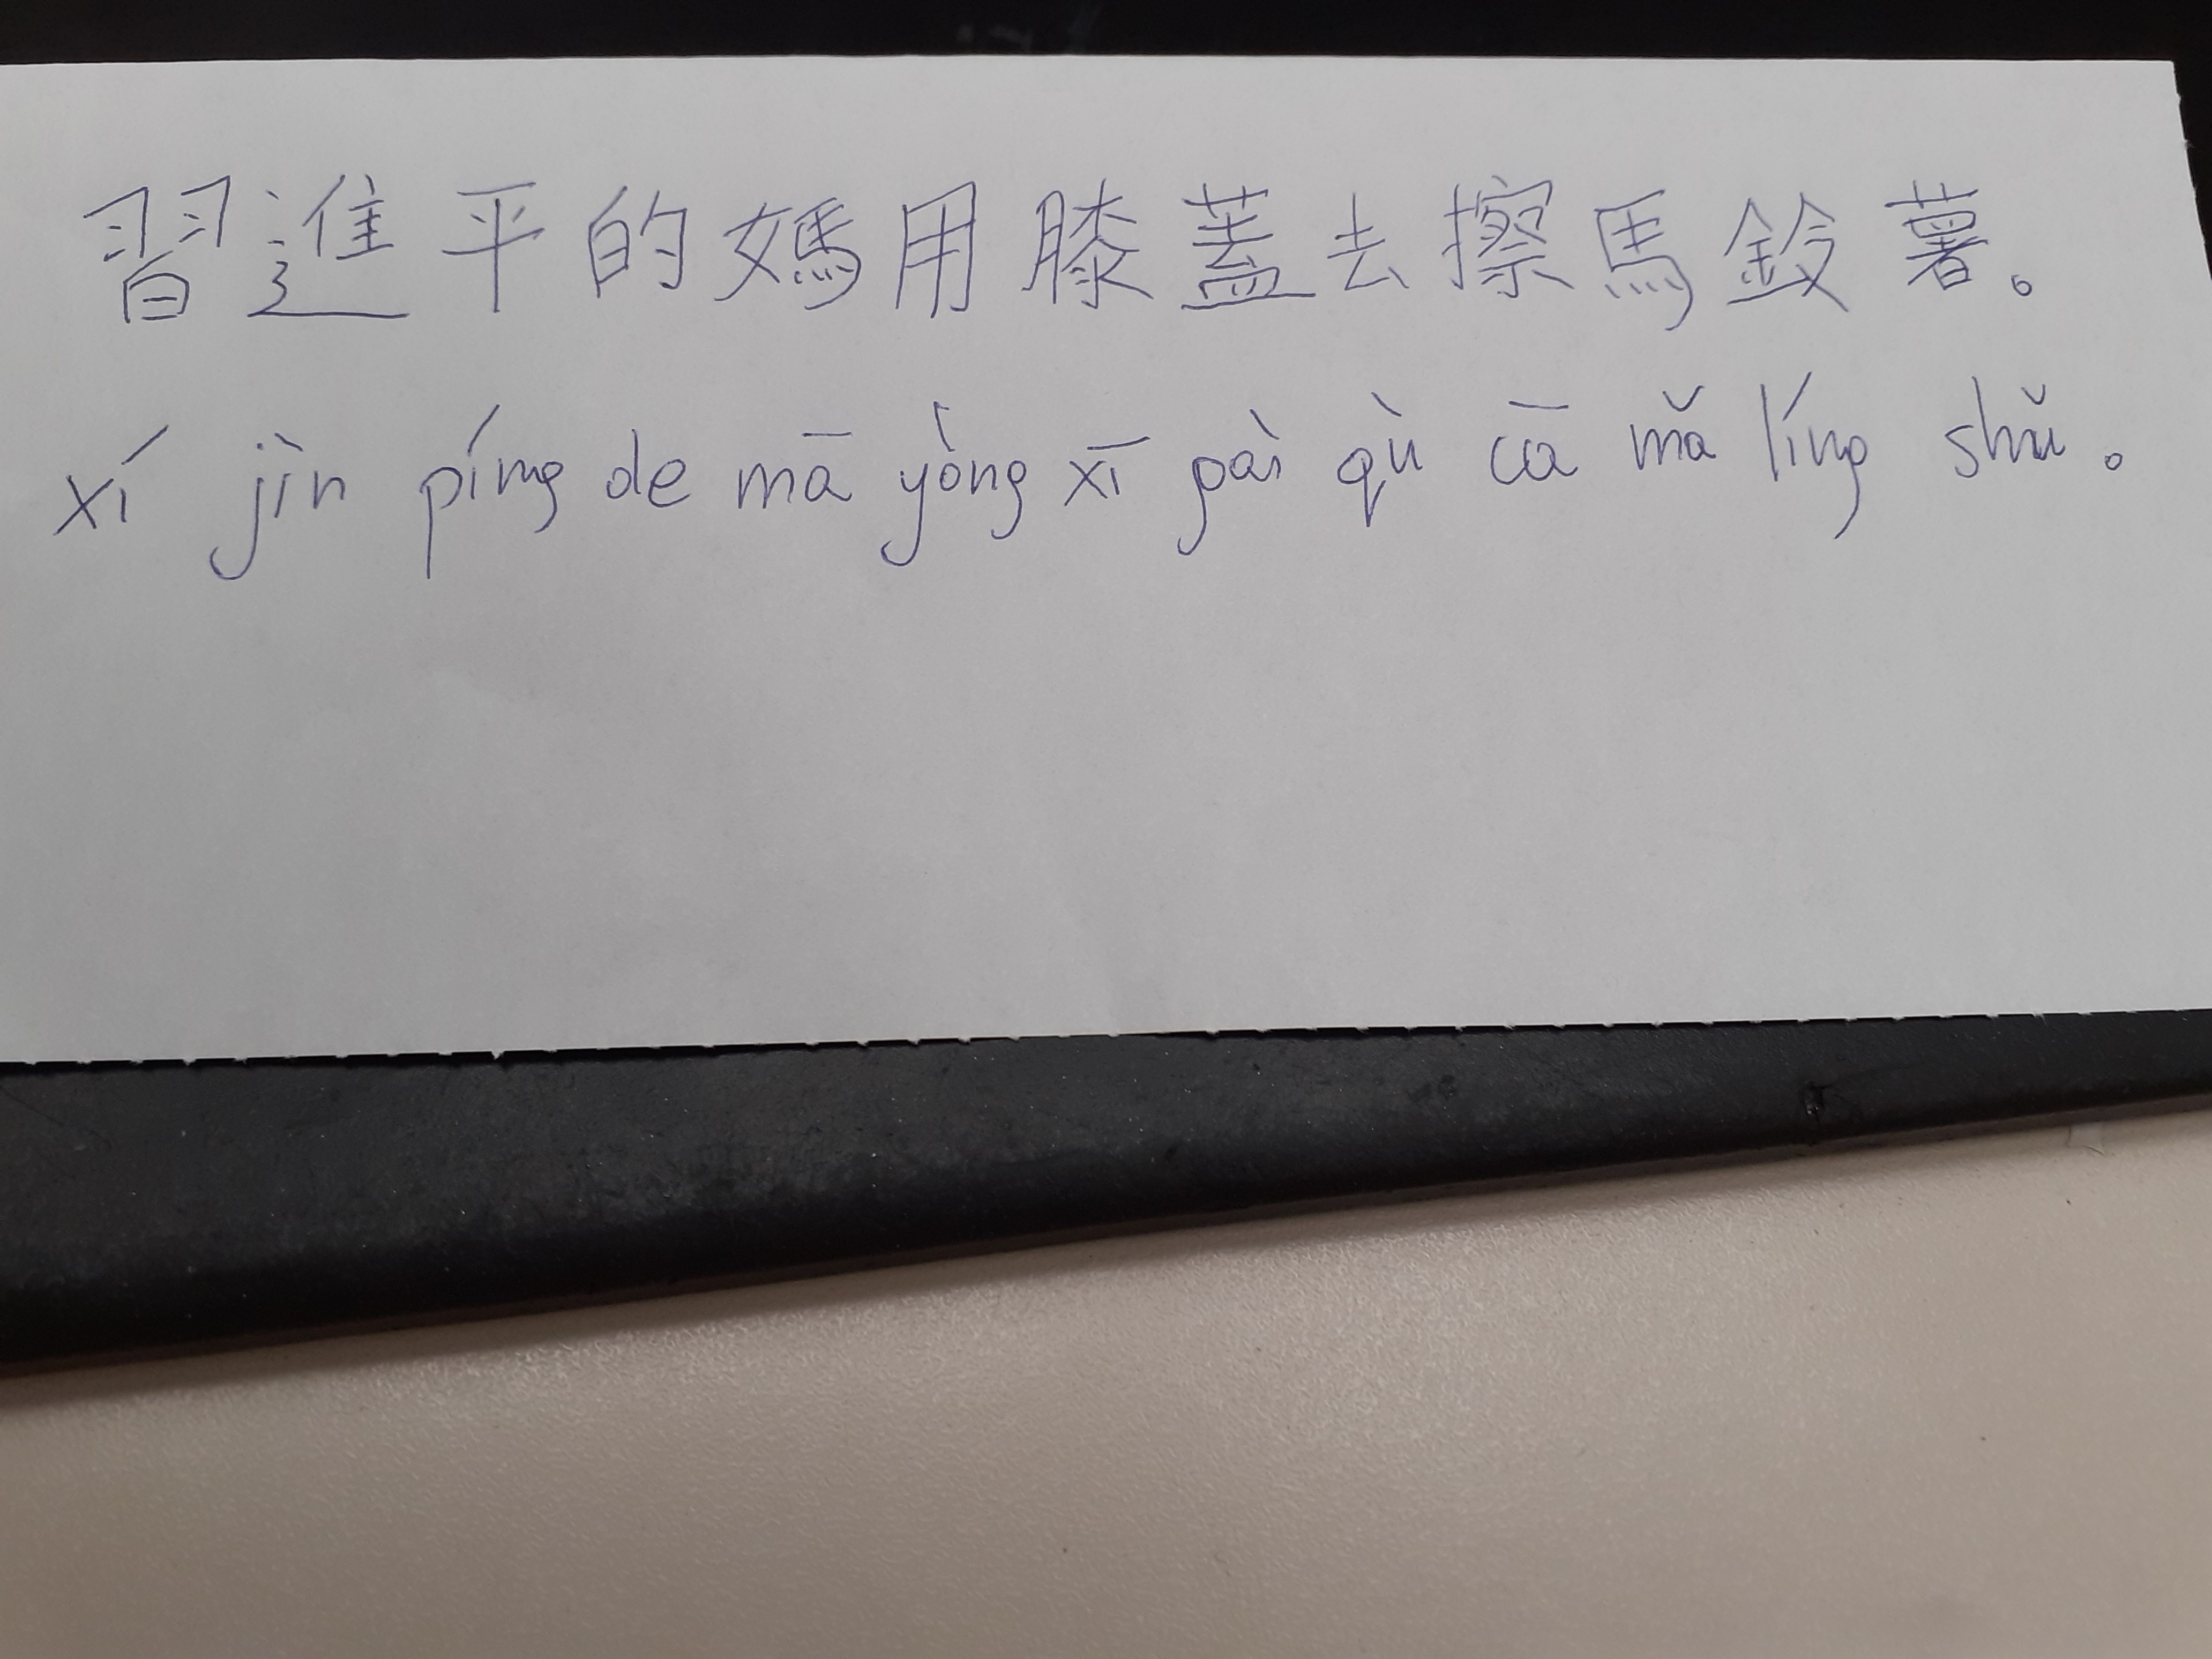 習進平的媽用膝蓋去擦馬鈴薯。
xí jìn píng de mā yòng xī gài qù cā mǎ líng shǔ。